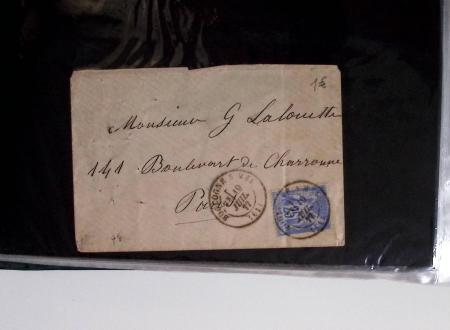 1€
Monsieur G Lalouette
141 Boulevart de Charronne
Paris
BOULOGNE S MER
10
JUIL
77